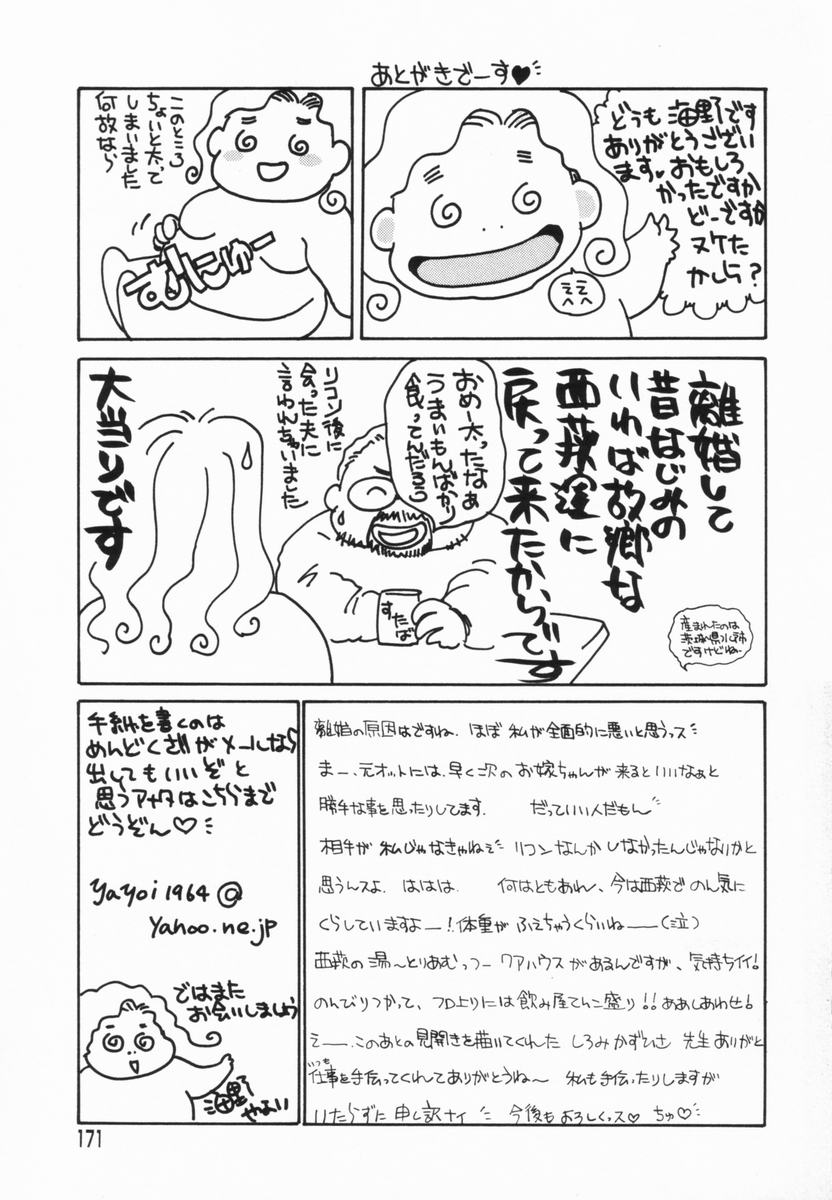 あとがきでーす♥
どうも海野です
ありがとうござい
ます♥おもしろ
かったですか
どーですか
ヌケた
かしら?
ええ
このところ
ちょいと太って
しまいました
何故なら
むにゅー
離婚して
昔なじみの
いわば故郷な
西荻窪に
戻って来たからです
産まれたのは
茨城県水戸市
ですけどね。
おめー太ったなぁ
うまいもんばかり
食ってんだろう
すたば
リコン後に
会った夫に
言われちゃいました
大当りです
離婚の原因はですね、ほぼ私が全面的に悪いと思うっス
まー、元オットには、早く次のお嫁ちゃんが来るといいなぁと
勝手な事を思ったりしてます。 だっていい人だもん
相手が私じゃなきゃねぇ リコンなんかしなかったんじゃないかと
思うんスよ、ははは、 何はともあれ、今は西荻でのん気に
くらしていますよー!体重がふえちゃうくらいね——(泣)
西荻の湯〜とりあむっつークアハウスがあるんですが、気持ちイイ!
のんびりつかって、フロ上りには飲み屋てんこ盛り!!ああしあわせ!
えー、このあとの見開きを描いてくれたしろみかずひさ先生ありがと
いつも
仕事を手伝ってくれてありがとうね〜 私も手伝ったりしますが
いたらずに申し訳ナイ 今後もよろしくっス♡ ちゅ♡
手紙を書くのは
めんどくさいがメールなら
出してもいいぞと
思うアナタはこちらまで
どうぞん♡
yayoi1964@
yahoo.ne.jp
ではまた
お会いしましょう
海野
やよい
171